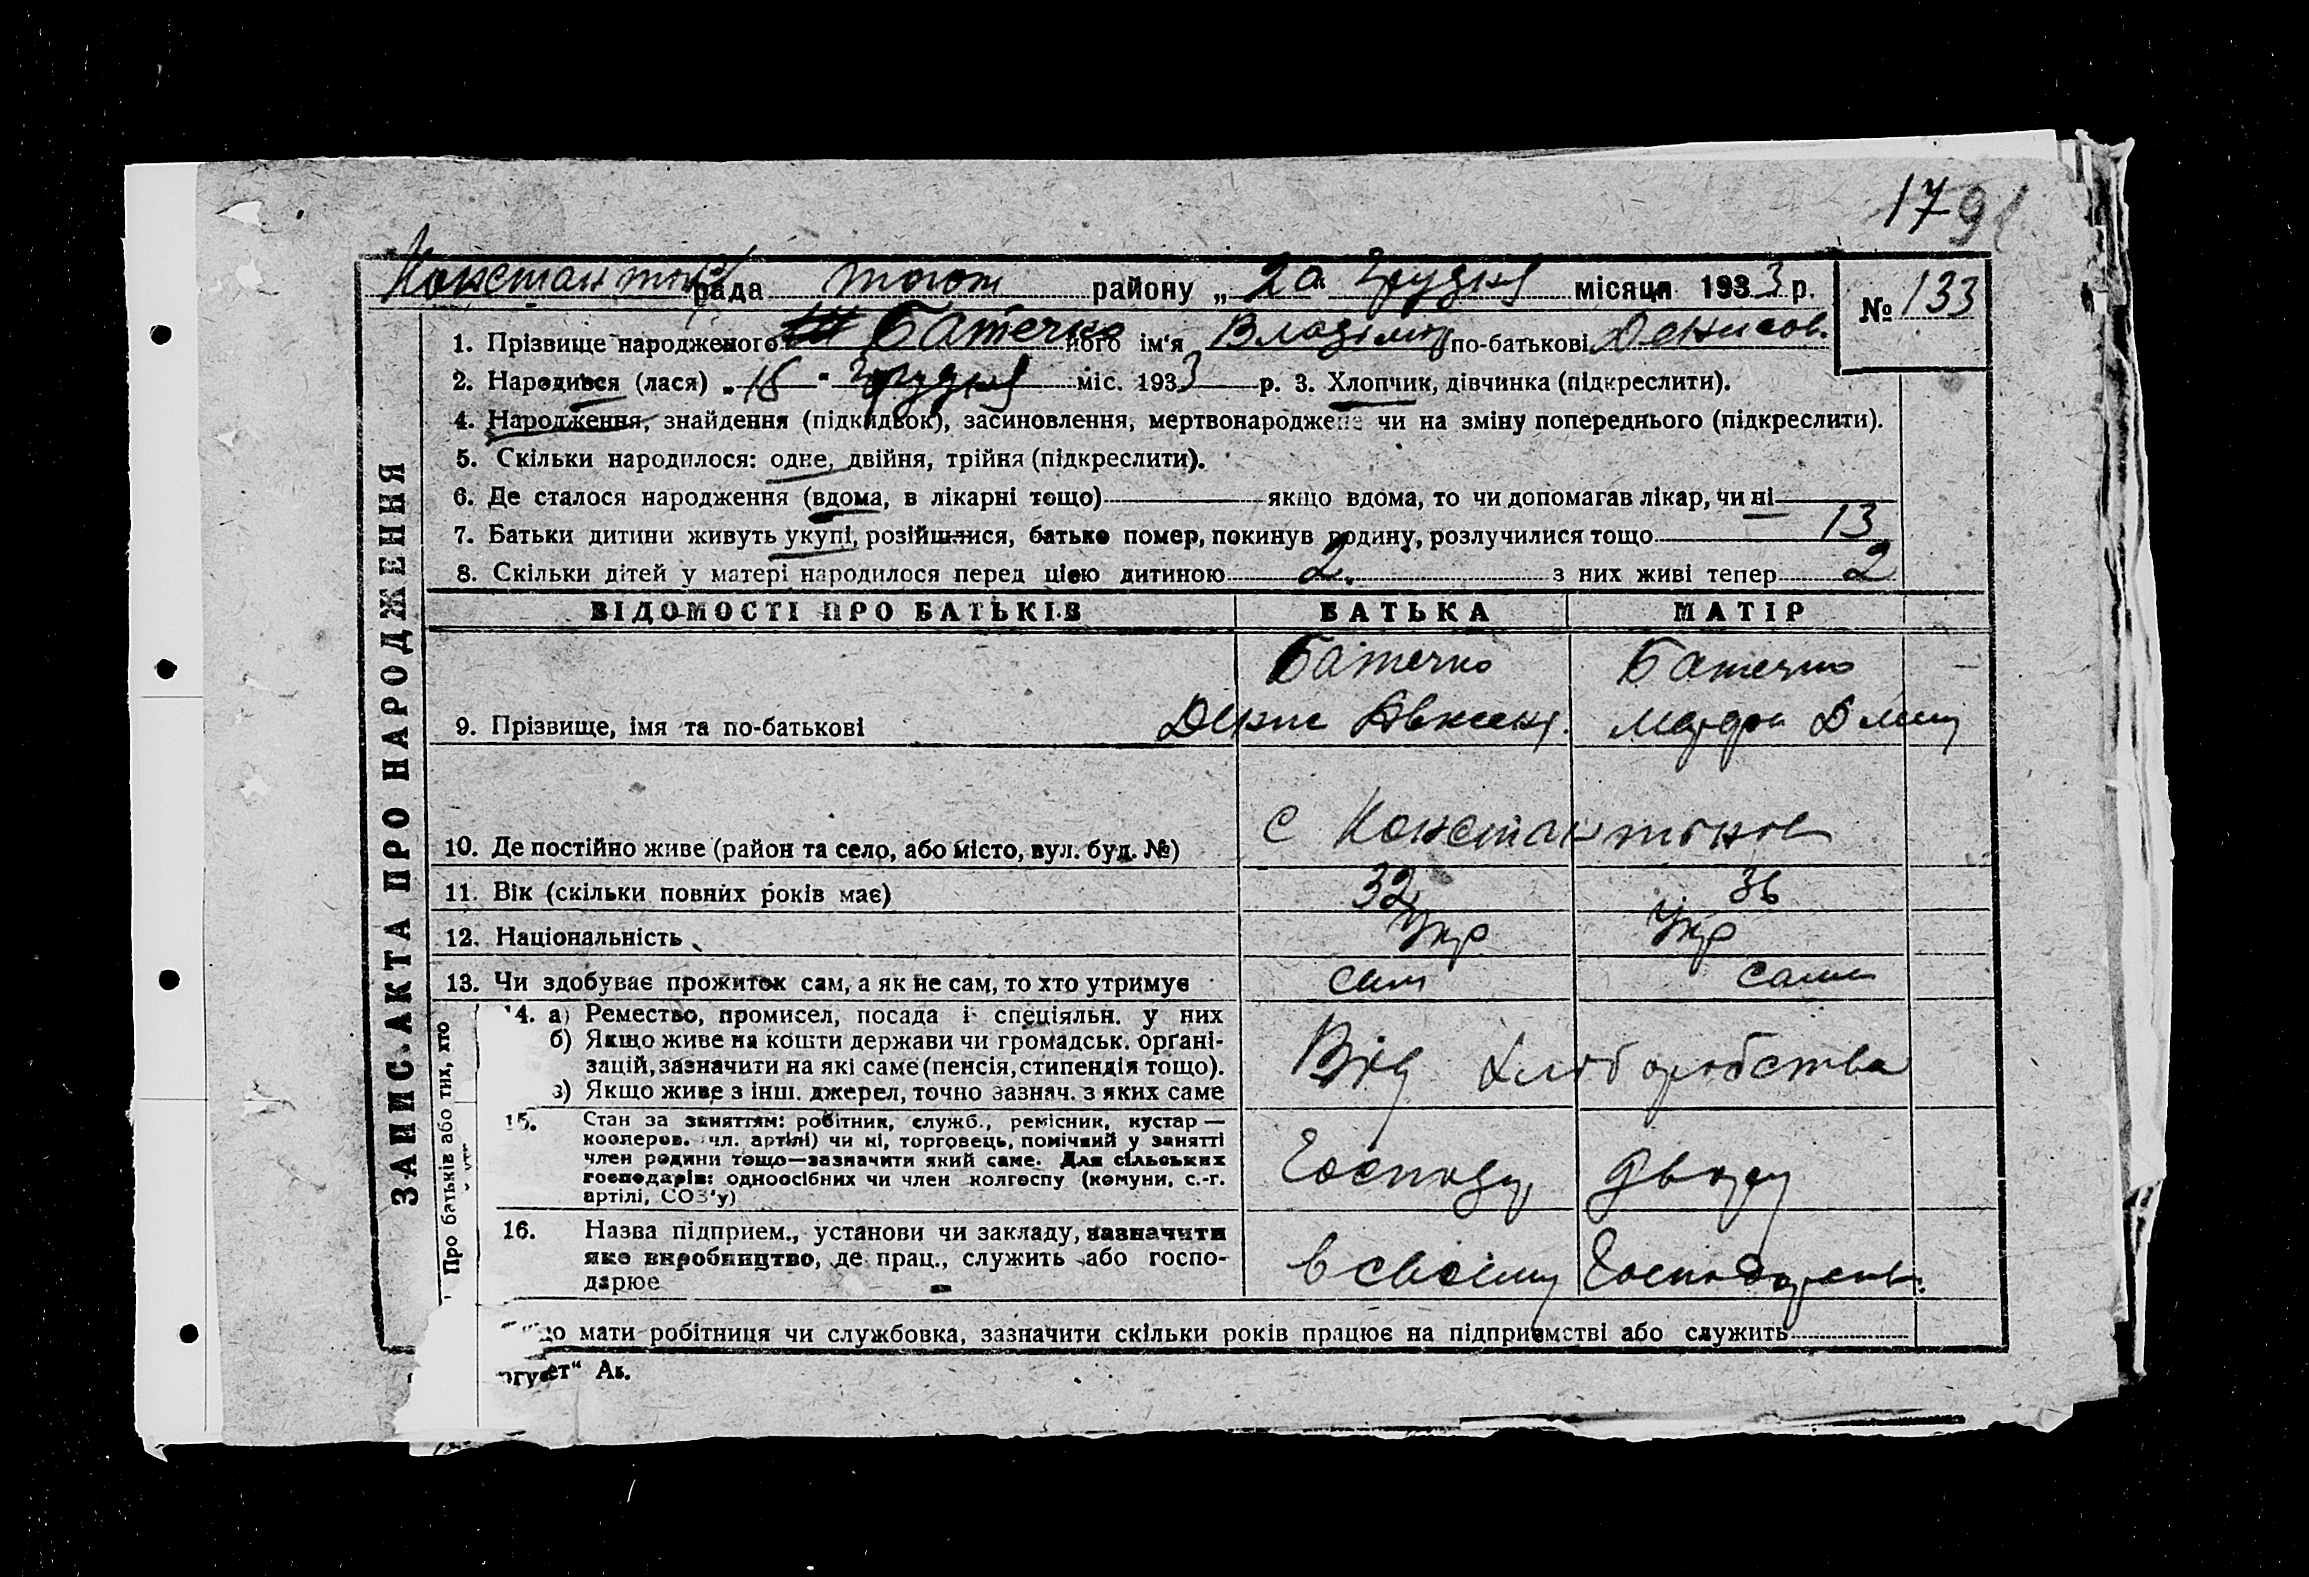 179
Констант рада району „ 2а грудня місяця 1933 р. № 133
1. Прізвище народженого Батечко його ім'я Владімир по-батькові Денисов.
2. Народився (лася) „ 16 " грудня міс. 1933 р. 3. Хлопчик, дівчинка (підкреслити).
4. Народження, знайдення (підкидьок), засиновлення, мертвонароджене чи на зміну попереднього (підкреслити).
5. Скільки народилося: одне, двійня, трійня (підкреслити).
6. Де сталося народження (вдома, в лікарні тощо) якщо вдома, то чи допомагав лікар, чи ні
7. Батьки дитини живуть укупі, розійшлися, батько помер, покинув родину, розлучилися тощо 13
8. Скільки дітей у матері народилося перед цією дитиною 2. з них живі тепер 2
ВІДОМОСТІ ПРО БАТЬКІВ БАТЬКА МАТІР
Батечко Батечко
9. Прізвище, імя та по-батькові Денис Авксент.
10. Де постійно живе (район та село, або місто, вул. буд. №) с Константинов
11. Вік (скільки повних років має) 32 36
12. Національність Укр Укр
13. Чи здобуває прожиток сам, а як не сам, то хто утримує сам сама
14. а) Ремество, промисел, посада і спеціяльн. у них
б) Якщо живе на кошти держави чи громадськ. органі-
зацій, зазначити на які саме (пенсія, стипендія тощо).
в) Якщо живе з інш. джерел, точно зазнач. з яких саме
Від хліборобства
15. Стан за заняттям: робітник, служб., ремісник, кустар —
кооперов. чл. артілі) чи ні, торговець, помічний у занятті
член родини тощо—зазначити який саме. Для сільських
господарів: одноосібних чи член колгоспу (комуни, с.-г.
артілі, СОЗ'у)
Господ двору
16. Назва підприєм., установи чи закладу, зазначити
яке виробництво, де прац., служить або госпо-
дарює
в своїму Господарств.
мати робітниця чи службовка, зазначити скільки років працює на підприємстві або служить
ЗАПИС АКТА ПРО НАРОДЖЕННЯ
Про батьків або тих, хто
Ак.